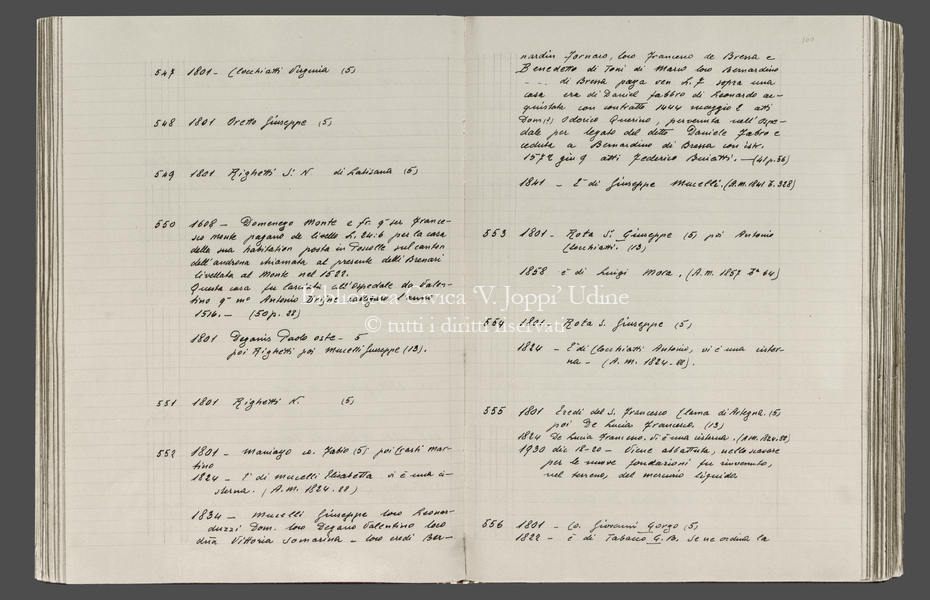 547 1801 - Clocchiatti Virginia (5)
548 1801 Oretto Giuseppe (5)
549 1801 Righetti S. N. di Latisana (5)
550 1608 - Domenego Monte e fr. q. ser France-
sco Monte pagano de livello L. 24:6 per la casa
della sua habitation posta in Poscolle sul canton
dell'androna chiamata al presente delli Brenari
livellata al Monte nel 1522.
Questa casa fu lasciata all'Ospedale da Valen-
tino q. m.º Antonio l'anno
1516. - (50 p. 22)
1801 Deganis Paolo oste - 5
poi Righetti poi Mucelli Giuseppe (13).
551 1801 Righetti N. (5)
552 1801 - Maniago co. Fabio (5) poi Ciarti Mar-
tino
1824 - È di Mucelli Elisabetta vi è una ci-
sterna. (A.M. 1824-88)
1834 - Mucelli Giuseppe loro Leonar-
duzzi Dom. loro Degano Valentino loro
Vittoria Somarina - loro eredi Ber-
100
nardin Fornaro, loro Francesco de Bressa e
Benedetto di Toni di Mario loro Bernardino
. . . di Bressa paga ven L. 7 sopra una
casa era di Daniel fabbro di Leonardo ac-
quistata con contratto 1444 maggio 2 atti
Dom(?) Odorico Querino, pervenuta nell'Ospe-
dale per legato del detto Daniele Fabro e
ceduta a Bernardino di Bressa con istr.
1572 giu 9 atti Federico Buiatti. - (41 p. 36)
1841 - È di Giuseppe Mucelli. (A.M. 1841 F. 328)
553 1801 - Rota S. Giuseppe (5) poi Antonio
Clocchiatti. (13)
1858 è di Luigi Mora. (A.M. 1857 Fº 64)
554 1801 - Rota S. Giuseppe (5)
1824 - È di Clocchiatti Antonio, vi è una cister-
na - (A.M. 1824-88).
555 1801 Eredi del S. Francesco Clama di Artegna. (5)
poi De Lucia Francesco. (13)
1824 De Lucia Francesco. Vi è una cisterna. (A.M. 1824-88)
1930 dic 18-20 - Viene abbattuta, nello scavare
per le nuove fondazioni fu rinvenuto,
nel terreno, del mercurio liquido.
556 1801 - Co. Giovanni Gorgo (5)
1822 - è di Tabacco G. B. Se ne ordina la
Biblioteca Civica 'V. Joppi' Udine
© tutti i diritti riservati